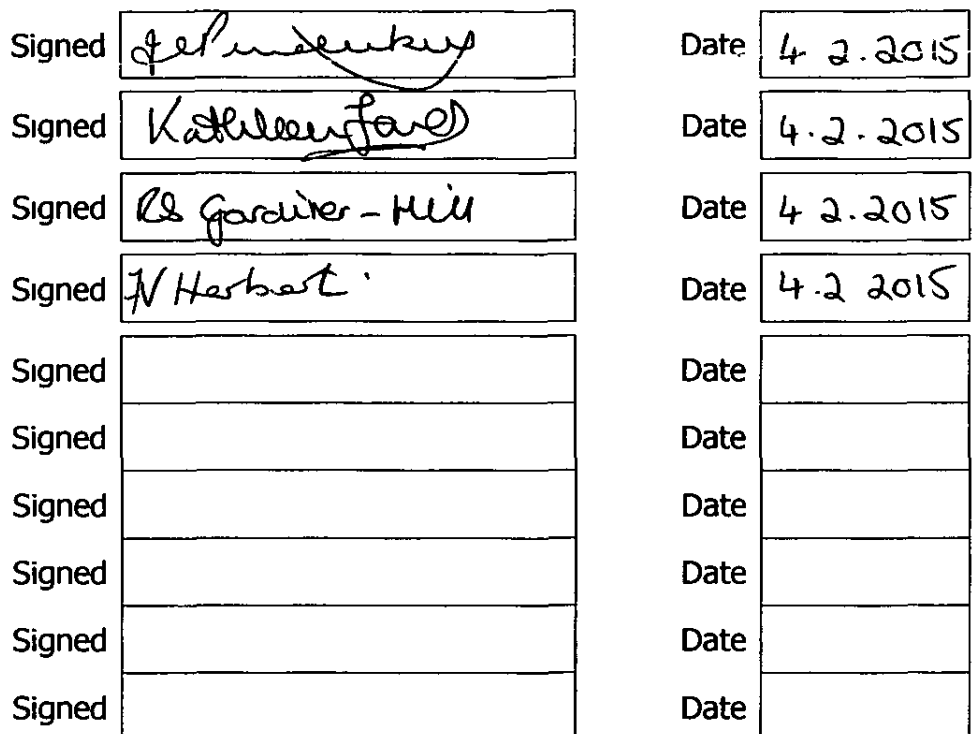 Signed Date 4 2.2015
Signed Kathleen Date 4.2.2015
Signed RS Gardiner-Hill Date 4 2.2015
Signed N Herbert Date 4.2 2015
Signed Date
Signed Date
Signed Date
Signed Date
Signed Date
Signed Date